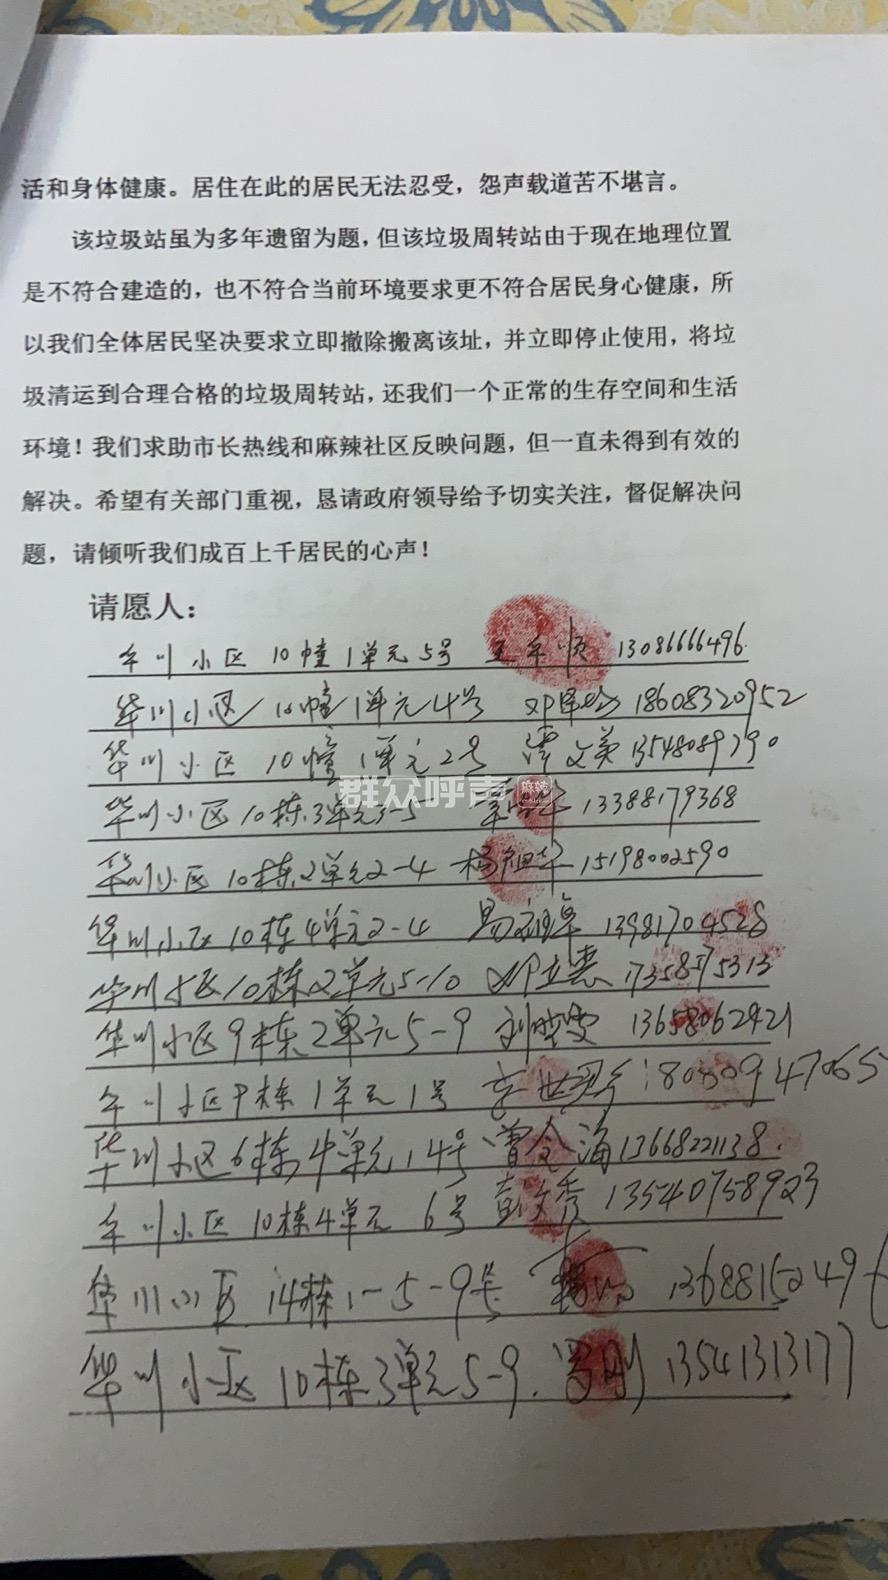 活和身体健康。居住在此的居民无法忍受，怨声载道苦不堪言。
该垃圾站虽为多年遗留为题，但该垃圾周转站由于现在地理位置
是不符合建造的，也不符合当前环境要求更不符合居民身心健康，所
以我们全体居民坚决要求立即撤除搬离该址，并立即停止使用，将垃
圾清运到合理合格的垃圾周转站，还我们一个正常的生存空间和生活
环境！我们求助市长热线和麻辣社区反映问题，但一直未得到有效的
解决。希望有关部门重视，恳请政府领导给予切实关注，督促解决问
题，请倾听我们成百上千居民的心声！
请愿人：
华川小区 10幢1单元5号 13086666496
华川小区 10幢1单元4号 18608320952
华川小区 10幢1单元2号 谭文英 13548089790
群众呼声
华川小区10栋3单元3-5 13388179368
华川小区10栋2单元2-4 15198002590
华川小区10栋4单元2-4 13981704528
华川小区10栋2单元5-10 17358575313
华川小区9栋2单元5-9 13658062421
华川小区 栋1单元1号 18080947065
华川小区6栋4单元14号 曾令海 13668221138
华川小区 10栋4单元 6号 彭文秀 13540758923
华川小区 14栋1-5-9号 1368815249
华川小区10栋3单元5-9 罗刚 13541313177